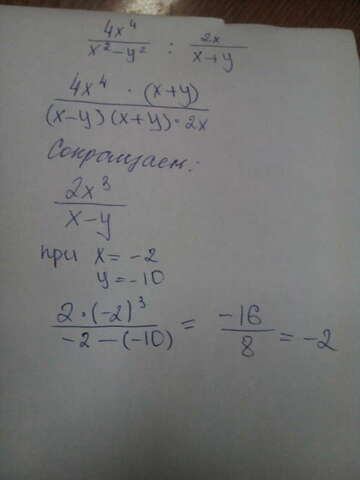 4x⁴/(x²-y²) : 2x/(x+y)
4x⁴ · (x+y)/((x-y)(x+y)·2x)
Сокращаем:
2x³/(x-y)
при x = -2
y = -10
2·(-2)³/(-2-(-10)) = -16/8 = -2